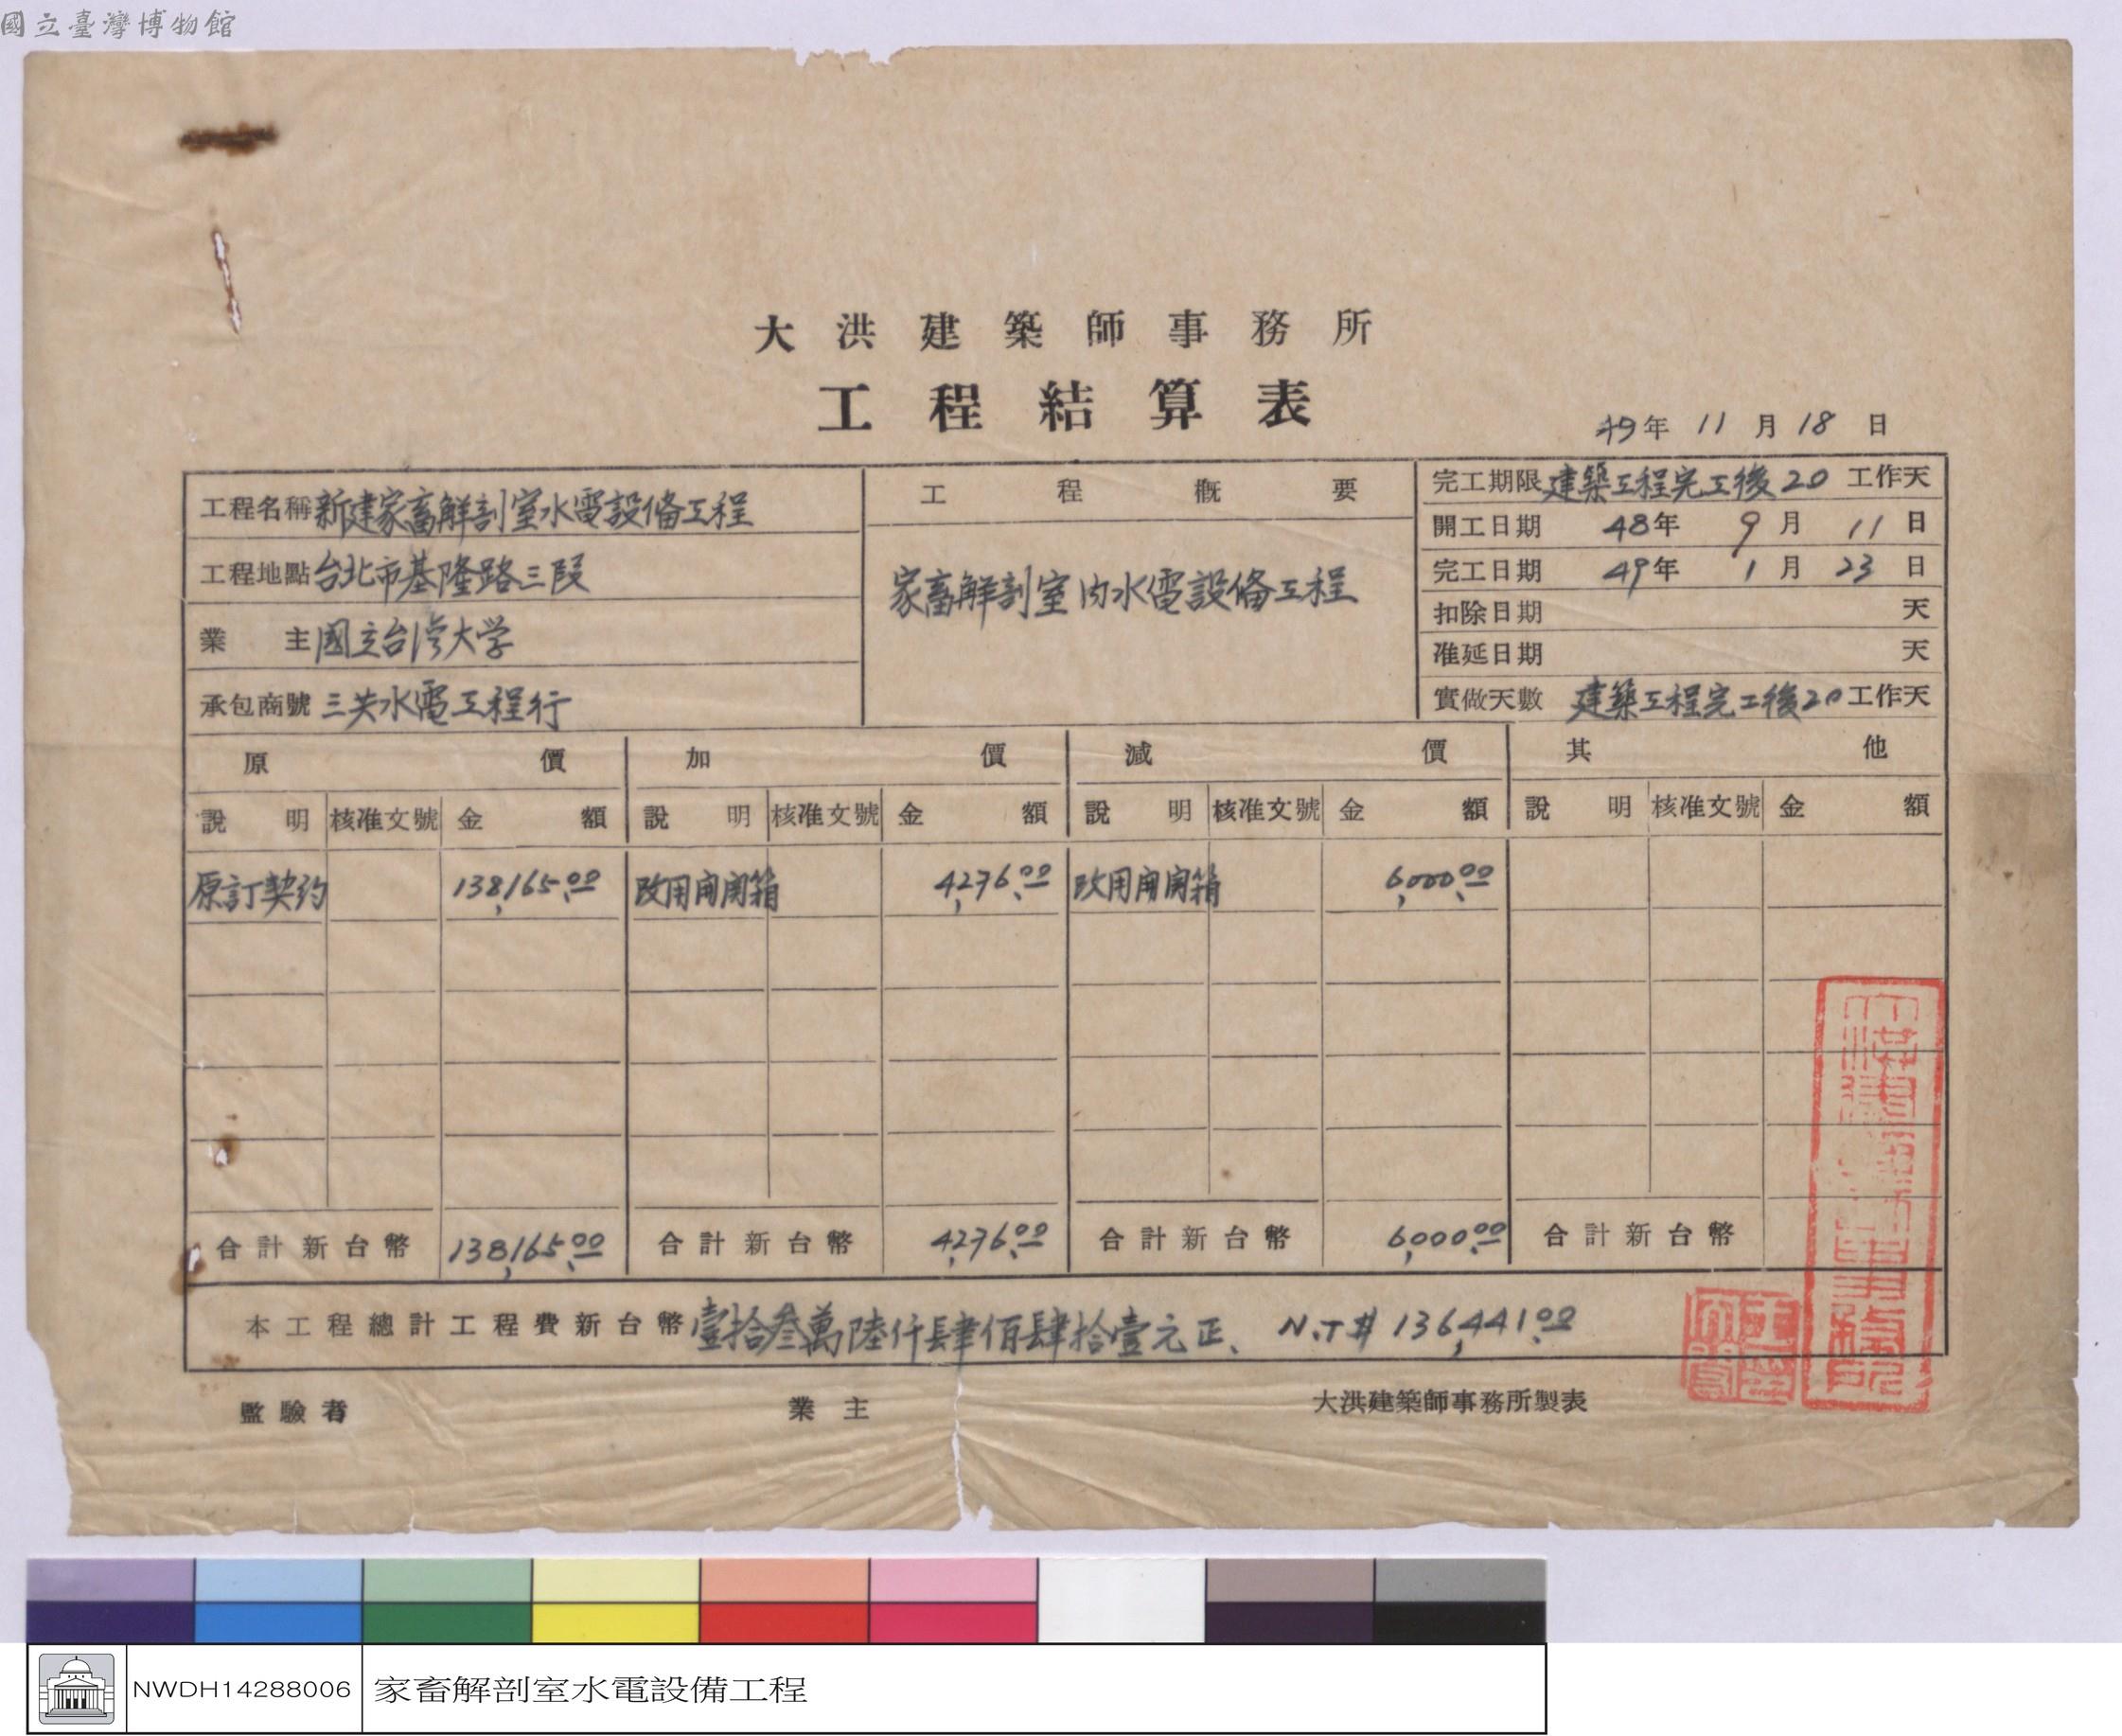 國立臺灣博物館
大洪建築師事務所
工程結算表
49年 11月 18日
工程名稱 新建家畜解剖室水電設備工程
工程地點 台北市基隆路三段
業主 國立台湾大学
承包商號 三共水電工程行
工程概要
家畜解剖室内水電設備工程
完工期限 建築工程完工後20工作天
開工日期 48年 9月 11日
完工日期 49年 1月 23日
扣除日期 天
准延日期 天
實做天數 建築工程完工後20工作天
原價 加價 減價 其他
說明 核准文號 金額 說明 核准文號 金額 說明 核准文號 金額 說明 核准文號 金額
原訂契约 138,165.00 改用開関箱 4,276.00 改用開関箱 6,000.00
合計新台幣 138,165.00 合計新台幣 4,276.00 合計新台幣 6,000.00 合計新台幣
本工程總計工程費新台幣 壹拾叁萬陸仟肆佰肆拾壹元正、 N.T$ 136,441.00
監驗者 業主 大洪建築師事務所製表
大洪建築師事務所
NWDH14288006 家畜解剖室水電設備工程